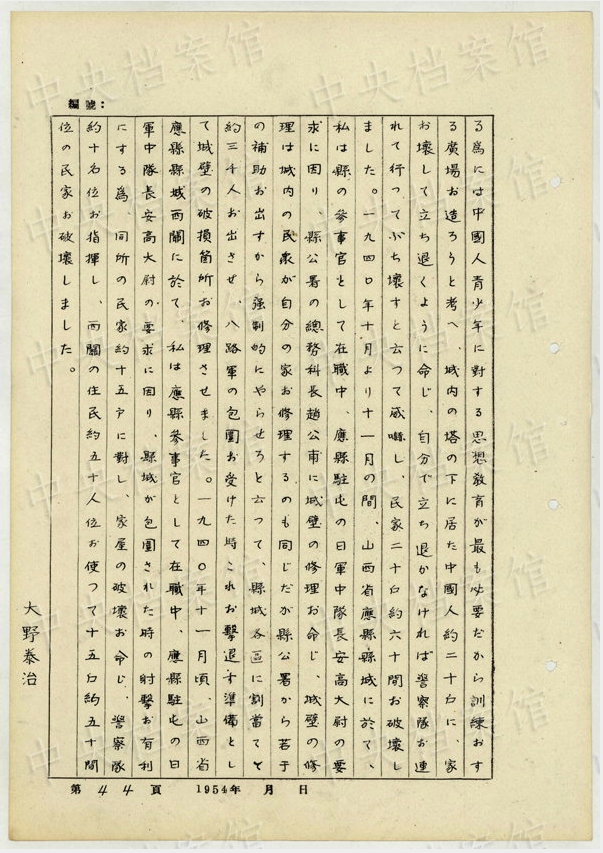 編號：
る為には中國人青少年に対する思想敎育が最も必要だから訓練おす
る廣場お造ろうと考へ、城内の塔の下に居た中國人約二十戸に、家
お壊して立ち退くように命じ、自分で立ち退かなければ警察隊お連
れて行つてぶち壊すと云つて威嚇し、民家二十戸約六十間お破壊し
ました。一九四〇年十月より十一月の間、山西省應縣縣城に於て、
私は縣の參事官として在職中、應縣駐屯の日軍中隊長安高大尉の要
求に因り、縣公署の總務科長趙公甫に城壁の修理お命じ、城壁の修
理は城内の民衆が自分の家お修理するのも同じだが縣公署から若干
の補助お出すから強制的にやらせろと云つて、縣城各區に割當てて
約三千人お出させ、八路軍の包圍お受けた時これお擊退す準備とし
て城壁の破損箇所お修理させました。一九四〇年十一月頃、山西省
應縣縣城西關に於て、私は應縣參事官として在職中、應縣駐屯の日
軍中隊長安高大尉の要求に因り、縣城が包圍された時の射擊お有利
にする為、同所の民家約十五戸に対し、家屋の破壊お命じ、警察隊
約十名位お指揮し、西關の住民約五十人位お使つて十五戸約五十間
位の民家お破壊しました。
大野泰治
第 44 頁 1954年 月 日
中央档案馆